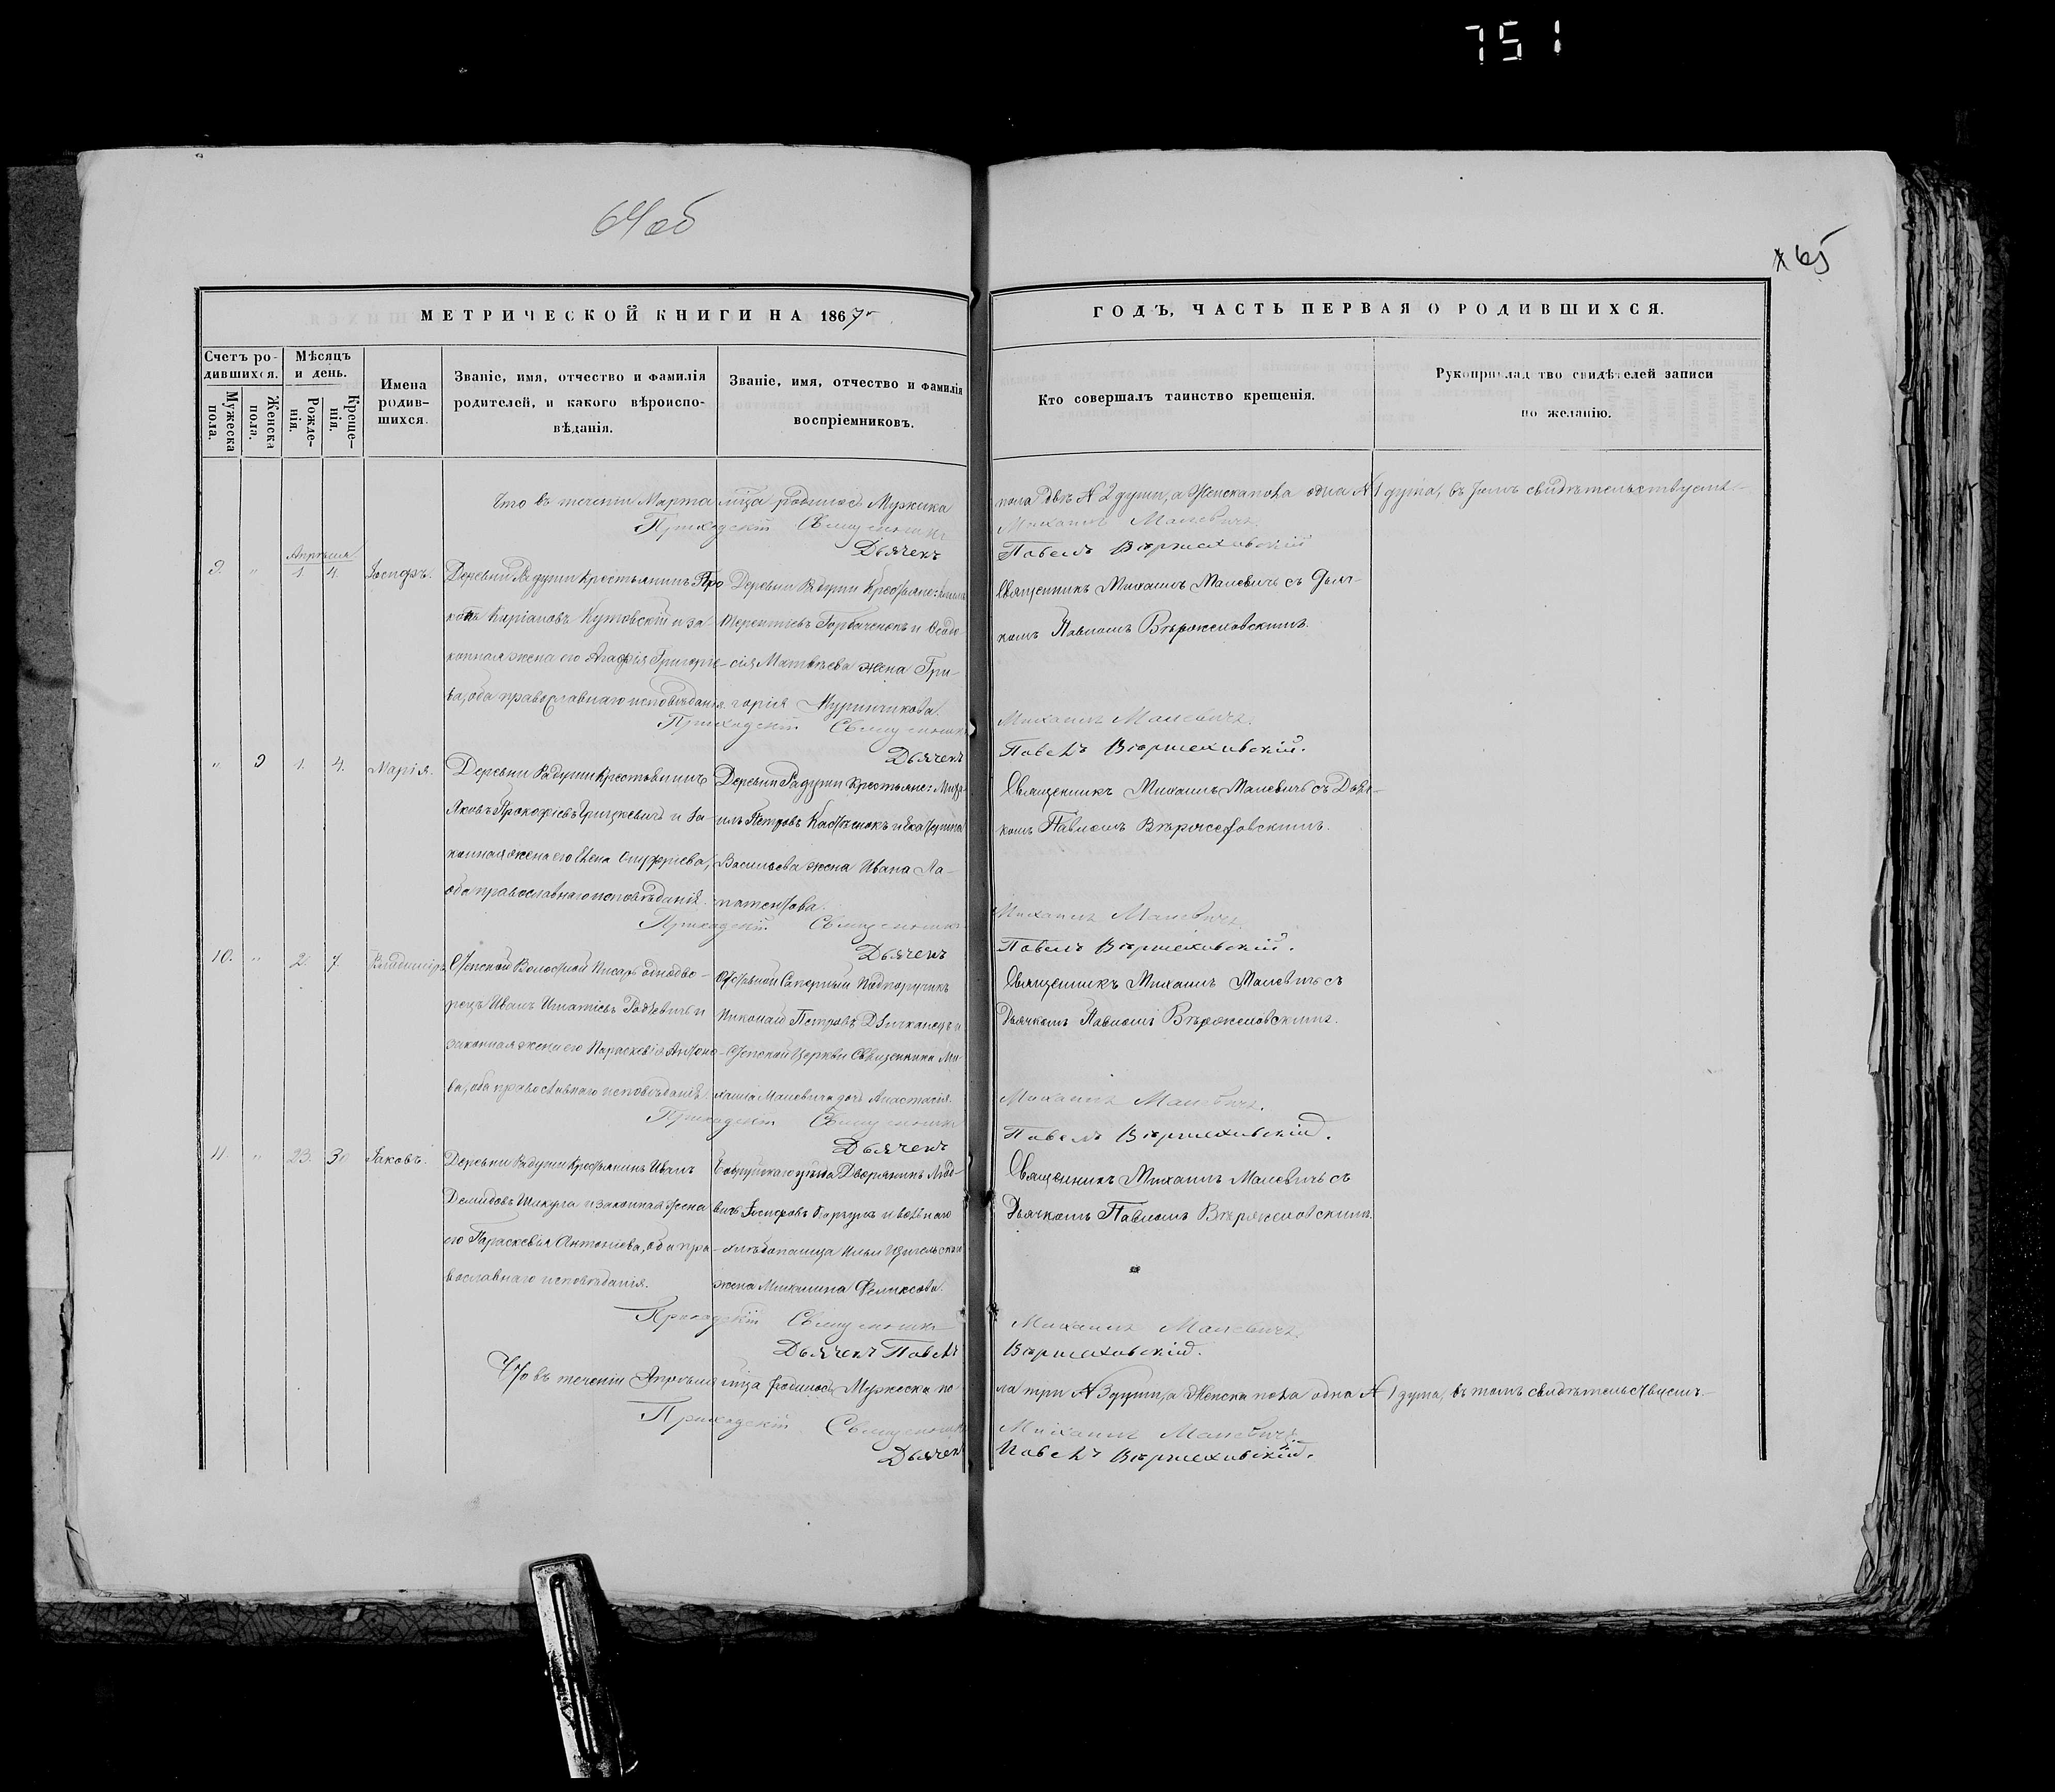 751
64 об
65
МЕТРИЧЕСКОЙ КНИГИ НА 1867
ГОДЪ, ЧАСТЬ ПЕРВАЯ О РОДИВШИХСЯ.
Счетъ ро-
дившихся.
Мужеска
пола.
Женска
пола.
Мѣсяцъ
и день.
Рожде-
нія.
Креще-
нія.
Имена
родив-
шихся.
Званіе, имя, отчество и фамилія
родителей, и какого вѣроиспо-
вѣданія.
Званіе, имя, отчество и фамилія
воспріемниковъ.
Кто совершалъ таинство крещенія.
Рукоприклад тво свидѣтелей записи
по желанію.
Что въ теченіи Марта мѣца родилось Мужска
пола двѣ № 2 души, а Женска пола одна № 1 душа, въ томъ свидѣтельствуемъ
Приходскій Священникъ
Михаилъ Малевичъ
Дьячекъ
Павелъ Вѣржеховскій
Апрѣля
9. " 1. 4. Іосифъ.
Деревни Радуши Крестьянинъ Про-
кофій Кутовскій и за-
конная жена его Агафія Григорье-
ва, оба православнаго исповѣданія.
Деревни Радуши Крестьяне:
Терентіевъ Горбаченокъ и Ѳеодо-
сія Матвѣева жена Гри-
горія
Священникъ Михаилъ Малевичъ съ Дьяч-
комъ Павломъ Вѣржеховскимъ.
Приходскій Священникъ
Михаилъ Малевичъ.
Дьячекъ
Павелъ Вѣржеховскій.
" 2 1. 4. Марія.
Деревни Радуши Крестьянинъ
Яковъ Прокофіевъ Грицкевичъ и за-
конная жена его Елена Онуфріева,
оба православнаго исповѣданія.
Деревни Радуши Крестьяне: Миха-
илъ Петровъ и Екатерина
Васильева жена Ивана Ла-
Священникъ Михаилъ Малевичъ съ Дьяч-
комъ Павломъ Вѣржеховскимъ.
Приходскій Священникъ
Михаилъ Малевичъ.
Дьячекъ
Павелъ Вѣржеховскій.
10. " 2. 7. Владиміръ
Волостной Писарь однодво-
рецъ Иванъ Игнатіевъ и
законная жена его Параскевія Антоно-
ва, оба православнаго исповѣданія.
Отставной Саперный Подпоручикъ
Николай Петровъ и
Церкви Священника Ми-
хаила Малевича дочь Анастасія.
Священникъ Михаилъ Малевичъ съ
Дьячкомъ Павломъ Вѣржеховскимъ.
Приходскій Священникъ
Михаилъ Малевичъ.
Дьячекъ
Павелъ Вѣржеховскій.
11. " 23. 30 Іаковъ.
Деревни Радуши Крестьянинъ Иванъ
Демидовъ Шикула и законная жена
его Параскевія Антоніева, оба пра-
вославнаго исповѣданія.
Бобруйскаго уѣзда Дворянинъ Людо-
вигъ Іосифовъ и вольнаго
хлѣбопашца Ильи
жена Михалина Феликсова.
Священникъ Михаилъ Малевичъ съ
Дьячкомъ Павломъ Вѣржеховскимъ.
Приходскій Священникъ
Михаилъ Малевичъ.
Дьячекъ Павелъ
Вѣржеховскій.
Что въ теченіи Апрѣля мѣца родилось Мужеска по-
ла три № 3 души, а Женска пола одна № 1 душа, въ томъ свидѣтельствуемъ
Приходскій Священникъ
Михаилъ Малевичъ
Дьячекъ
Павелъ Вѣржеховскій.